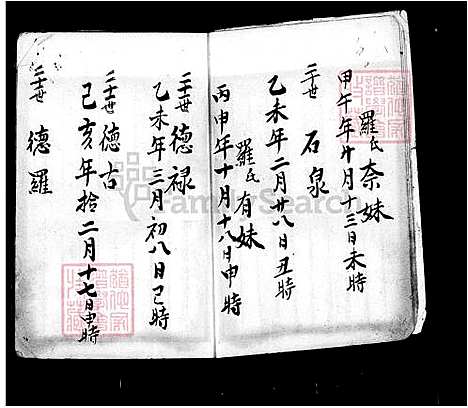 羅氏奈妹
甲午年廿月十三日未時
二十世 石泉
乙未年二月廿八日丑時
羅氏有妹
丙申年十月十八日申時
二十世德禄
乙未年三月初八日己時
二十世德古
己亥年拾二月十七日申時
二十世 德羅
FamilySearch